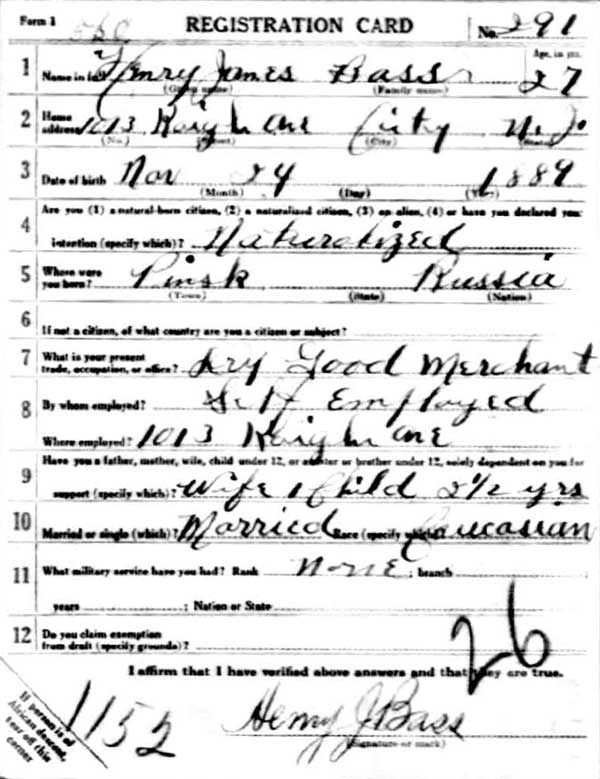 Form 1 560 REGISTRATION CARD No. 291
1 Name in full Henry James Bass Age, in yrs. 27
(Given name) (Family name)
2 Home address 1013 Kaighn Ave City N. J.
(No.) (Street) (City) (State)
3 Date of birth Nov 24 1889
(Month) (Day) (Year)
4 Are you (1) a natural-born citizen, (2) a naturalized citizen, (3) an alien, (4) or have you declared your
intention (specify which)? Naturalized
5 Where were you born? Pinsk Russia
(Town) (State) (Nation)
6 If not a citizen, of what country are you a citizen or subject?
7 What is your present trade, occupation, or office? Dry Good Merchant
8 By whom employed? Self Employed
Where employed? 1013 Kaighn Ave
9 Have you a father, mother, wife, child under 12, or a sister or brother under 12, solely dependent on you for
support (specify which)? Wife 1 Child 2 1/2 yrs
10 Married or single (which)? Married Race (specify which)? Caucasian
11 What military service have you had? Rank None ; branch
years ; Nation or State
12 Do you claim exemption from draft (specify grounds)?
26
I affirm that I have verified above answers and that they are true.
If person is of
African descent,
tear off this
corner
1152 Henry J Bass
(Signature or mark)